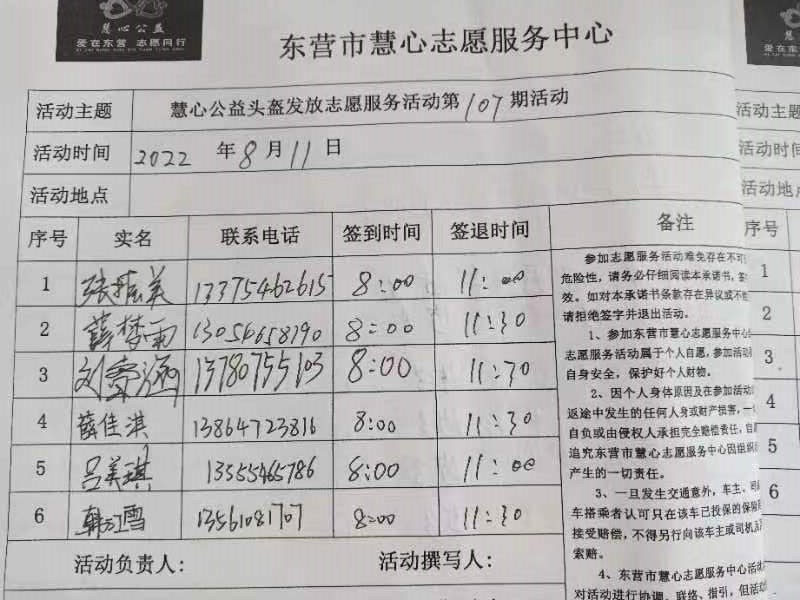 慧心公益
爱在东营 志愿同行
东营市慧心志愿服务中心
活动主题 慧心公益头盔发放志愿服务活动第107期活动
活动时间 2022 年 8 月 11 日
活动地点
序号 实名 联系电话 签到时间 签退时间 备注
1 张振美 13375462615 8:00 11:00
2 薛梦雨 13054658790 8:00 11:30
3 刘睿涵 13780755103 8:00 11:30
4 薛佳淇 13864723816 8:00 11:30
5 吕美琪 13555465786 8:00 11:00
6 韩江雪 13561081707 8:00 11:30
活动负责人: 活动撰写人:
参加志愿服务活动难免存在不可
危险性,请务必仔细阅读本承诺书,签
效。如对本承诺书条款存在异议或不
请拒绝签字并退出活动。
1、参加东营市慧心志愿服务中心
志愿服务活动属于个人自愿,参加活动
自身安全,保护好个人财物。
2、因个人身体原因及在参加活动
返途中发生的任何人身或财产损害,一
自负或由侵权人承担完全赔偿责任,自
追究东营市慧心志愿服务中心因组织
产生的一切责任。
3、一旦发生交通意外,车主、司
车搭乘者认可只在该车已投保的保险
接受赔偿,不得另行向该车主或司机
索赔。
4、东营市慧心志愿服务中心活动
对活动进行协调、联络、指引,但活
慧
爱在东
活动主题
活动时间
活动地
序号
1
2
3
4
5
6